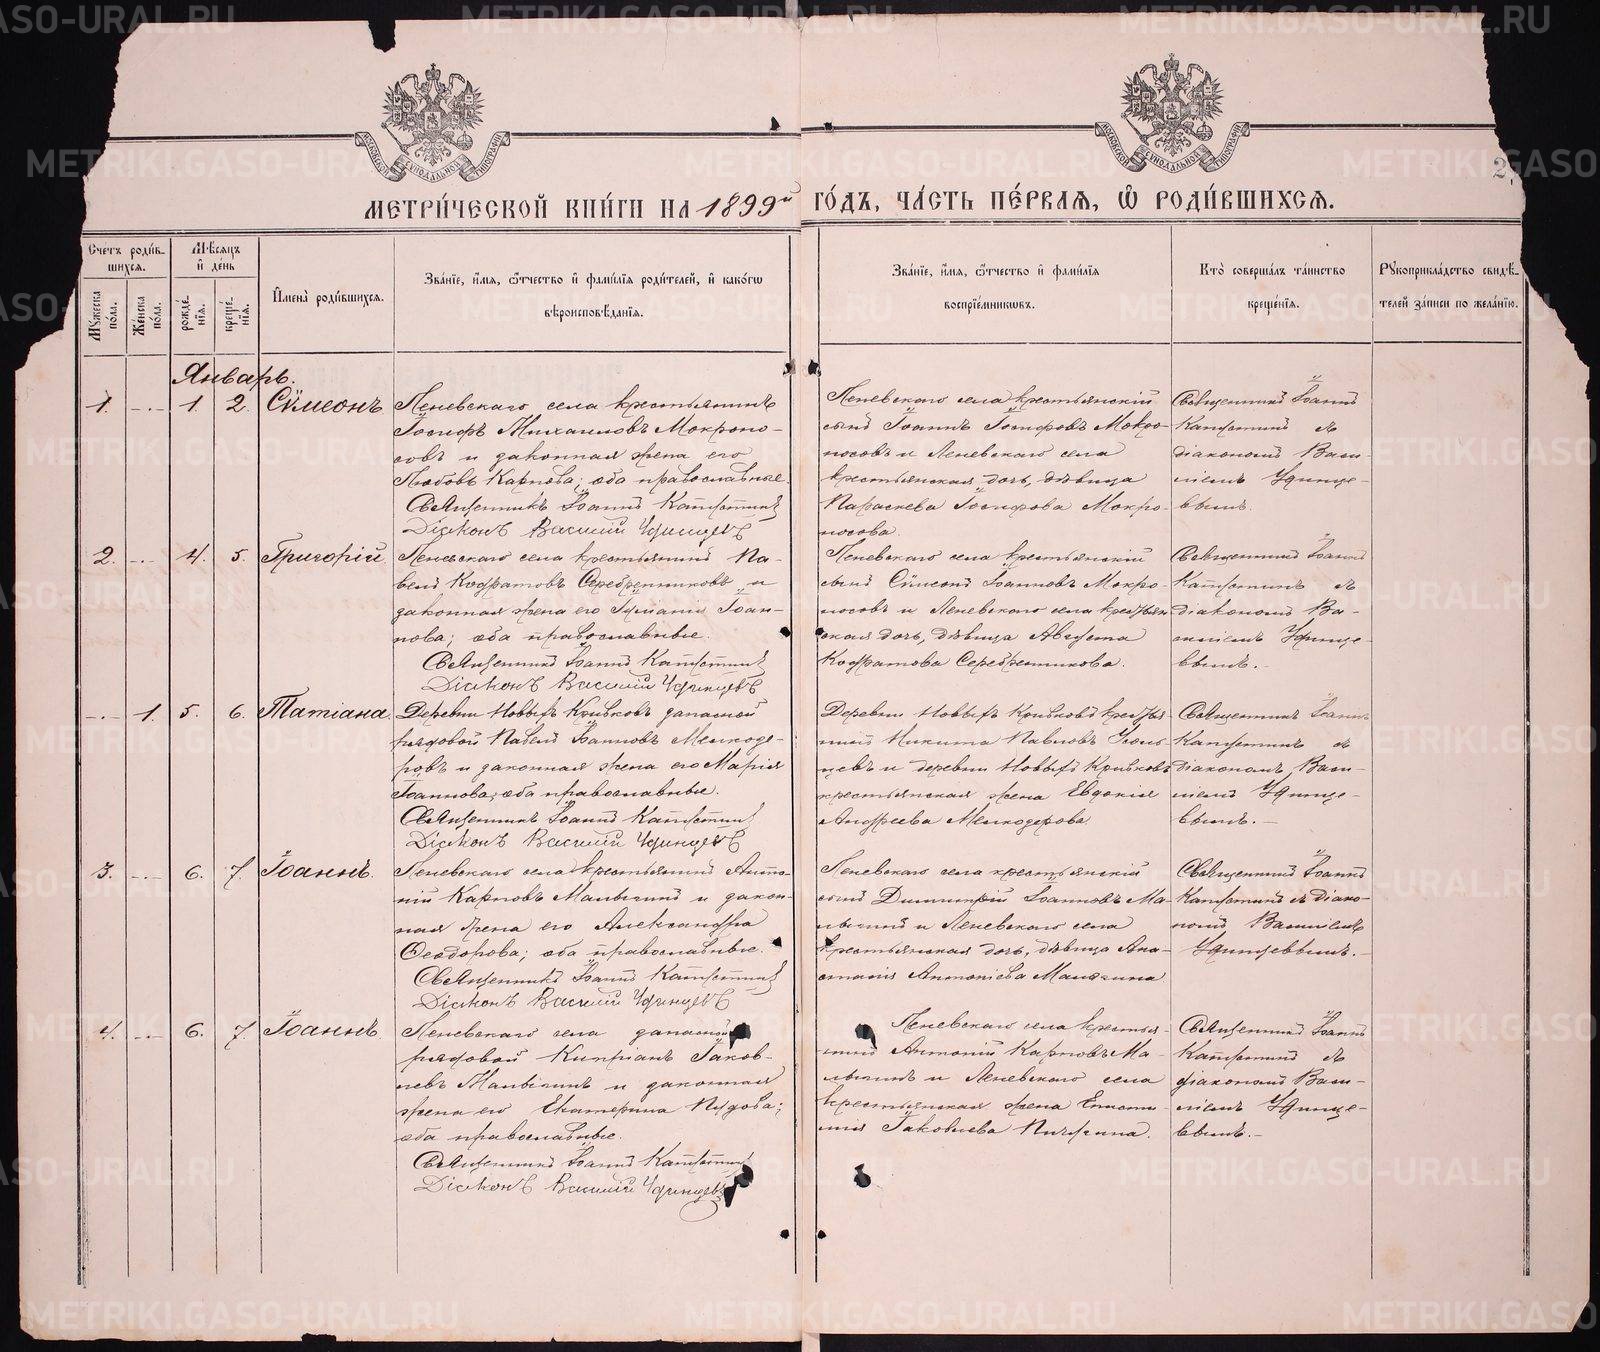 МЕТРИ́ЧЕСКОЙ КНИ́ГИ НА 1899й ГО́ДЪ, ЧА́СТЬ ПЕ́РВАЯ, Ѡ РОДИ́ВШИХСЯ.
2
МОСКОВСКОЙ СѴНОДАЛЬНОЙ ТИПОГРАФІИ
МОСКОВСКОЙ СѴНОДАЛЬНОЙ ТИПОГРАФІИ
Счетъ роди́в-
шихся.
Мѣсяцъ
и де́нь
Мужеска по́ла.
Же́нска по́ла.
рожде́нїя.
креще́нїя.
И҆мена̀ роди́вшихся.
Зва́нїе, и҆́мя, ѻ҆́тчество и҆ фами́лїя роди́телей, и҆ како́гѡ
вѣроисповѣ́данїя.
Зва́нїе, и҆́мя, ѻ҆́тчество и҆ фами́лїя
воспрїе́мникѡвъ.
Кто̀ соверша́лъ та́инство
креще́нїя.
Рꙋкоприкла́дство свидѣ́-
телей за́писи по жела́нїю.
Январь.
1. -..- 1. 2. Сѵмеонъ
Леневскаго села крестьянинъ
Іосифъ Михаиловъ Мокроно-
совъ и законная жена его
Любовь Карпова; оба православные.
Священникъ Іоаннъ
Діаконъ Василій Удинцевъ
Леневскаго села крестьянскій
сынъ Іоаннъ Іосифовъ Мокро-
носовъ и Леневскаго села
крестьянская дочь, дѣвица
Параскева Іосифова Мокро-
носова.
Священникъ Іоаннъ
съ
діакономъ Васи-
ліемъ Удинце-
вымъ.
2. -..- 4. 5. Григорій
Леневскаго села крестьянинъ Па-
велъ Кодратовъ Серебренниковъ и
законная жена его Іуліанія Іоан-
нова; оба православные.
Священникъ Іоаннъ
Діаконъ Василій Удинцевъ
Леневскаго села крестьянскій
сынъ Сѵмеонъ Іоанновъ Мокро-
носовъ и Леневскаго села крестьян-
ская дочь, дѣвица Августа
Кодратова Серебренникова.
Священникъ Іоаннъ
съ
діакономъ Ва-
силіемъ Удинце-
вымъ.-
-..- 1. 5. 6. Татіана
Деревни Новыхъ Кривковъ запасной
рядовой Павелъ Іоанновъ Мелкозе-
ровъ и законная жена его Марія
Іоаннова; оба православные.
Священникъ Іоаннъ
Діаконъ Василій Удинцевъ
Деревни Новыхъ Кривковъ крестья-
нинъ Никита Павловъ
и деревни Новыхъ Кривковъ
крестьянская жена Евдокія
Андреева Мелкозерова.
Священникъ Іоаннъ
съ
діакономъ Васи-
ліемъ Удинце-
вымъ.-
3. -..- 6. 7. Іоаннъ.
Леневскаго села крестьянинъ Анто-
ній Карповъ Малыгинъ и закон-
ная жена его Александра
Ѳеодорова; оба православные.
Священникъ Іоаннъ
Діаконъ Василій Удинцевъ
Леневскаго села крестьянскій
сынъ Димитрій Іоанновъ Ма-
лыгинъ и Леневскаго села
крестьянская дочь, дѣвица Ана-
стасія Антоніева Малыгина
Священникъ Іоаннъ
съ діако-
номъ Василіемъ
Удинцевымъ.-
4. -..- 6. 7. Іоаннъ.
Леневскаго села запасной
рядовой Кипріанъ Іаков-
левъ Малыгинъ и законная
жена его Екатерина Пудова;
оба православные.
Священникъ Іоаннъ
Діаконъ Василій Удинцевъ
Леневскаго села крестья-
нинъ Антоній Карповъ Ма-
лыгинъ и Леневскаго села
крестьянская жена
Іаковлева Пичугина.
Священникъ Іоаннъ
съ
діакономъ Васи-
ліемъ Удинце-
вымъ.-
METRIKI.GASO-URAL.RU